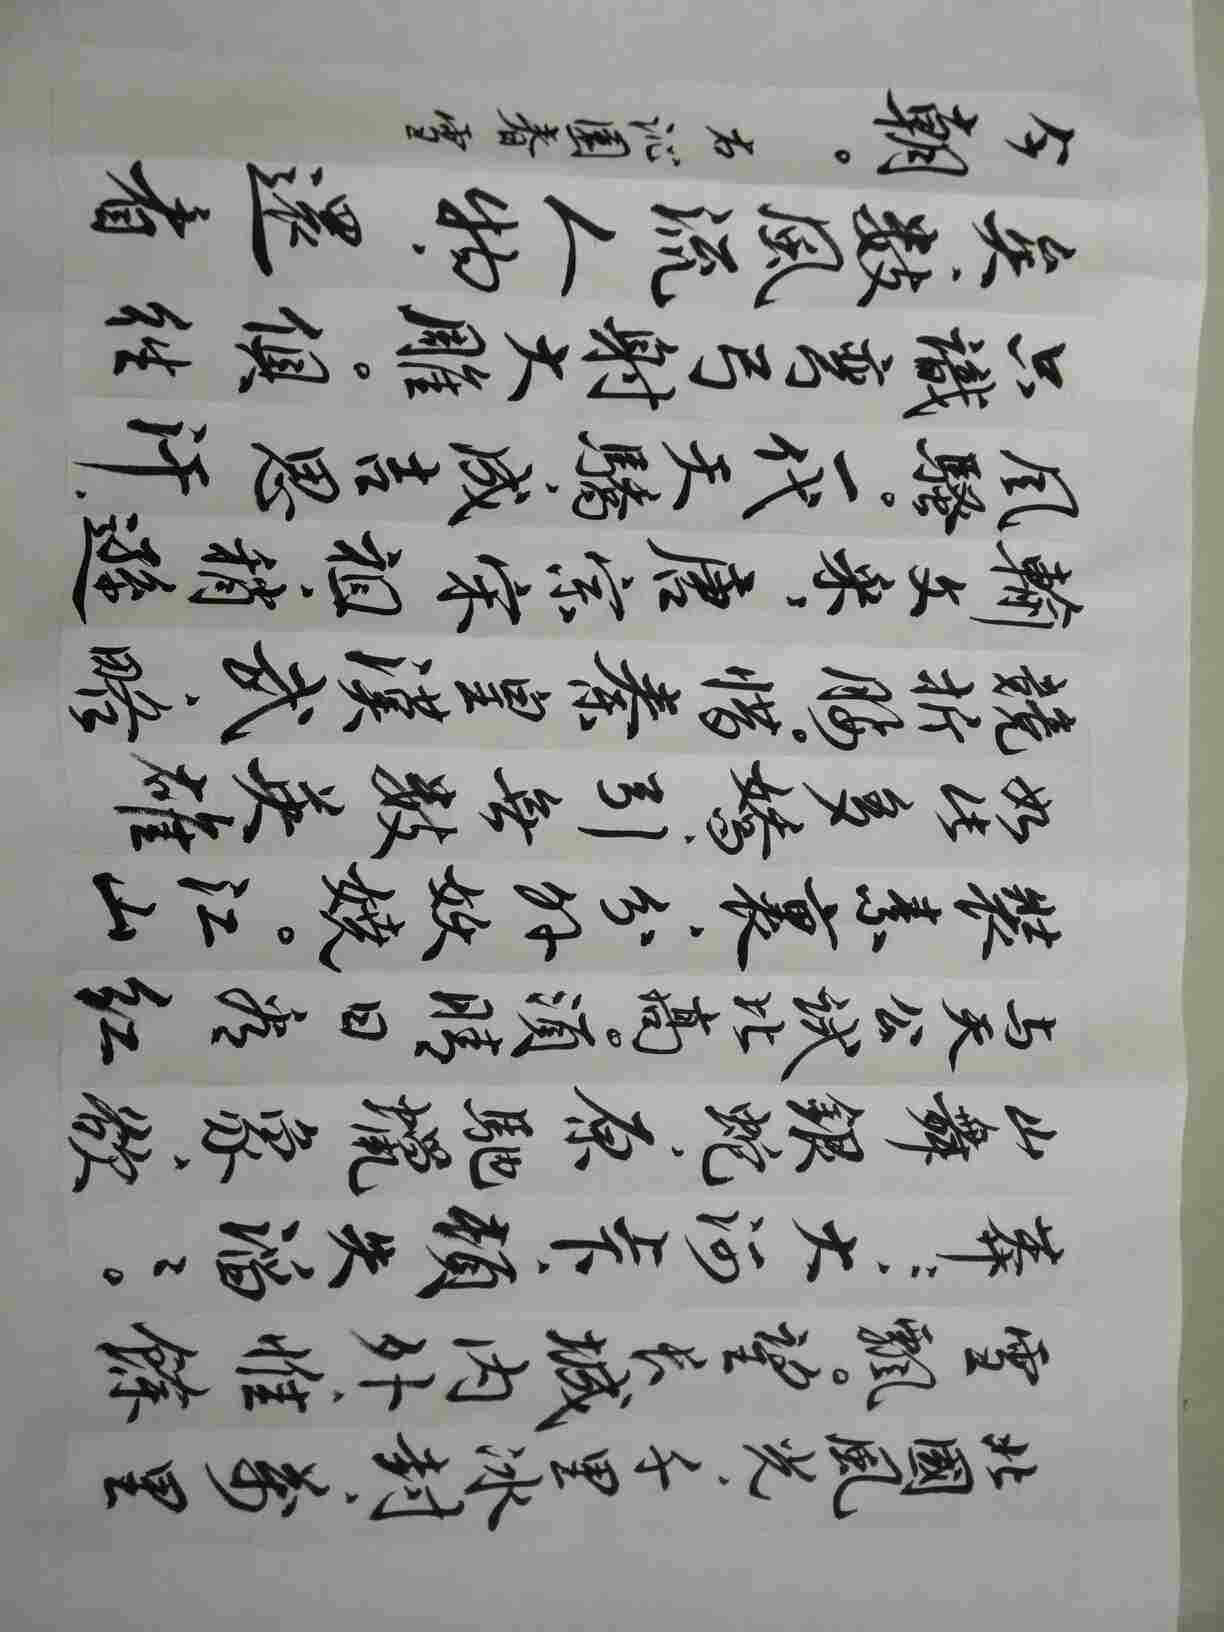 北國風光、千里冰封、萬里
雪飄。望長城内外、惟餘
莽〻、大河上下、頓失滔〻。
山舞銀蛇、原馳蠟象、欲
与天公試比高。須晴日看紅
裝素裹、分外妖嬈。江山
如此多嬌、引無數英雄
競折腰。惜秦皇漢武、略
輸文采、唐宗宋祖、稍遜
風騷。一代天驕、成吉思汗、
只識彎弓射大雕。俱往
矣、數風流人物、還看
今朝。
右沁園春雪